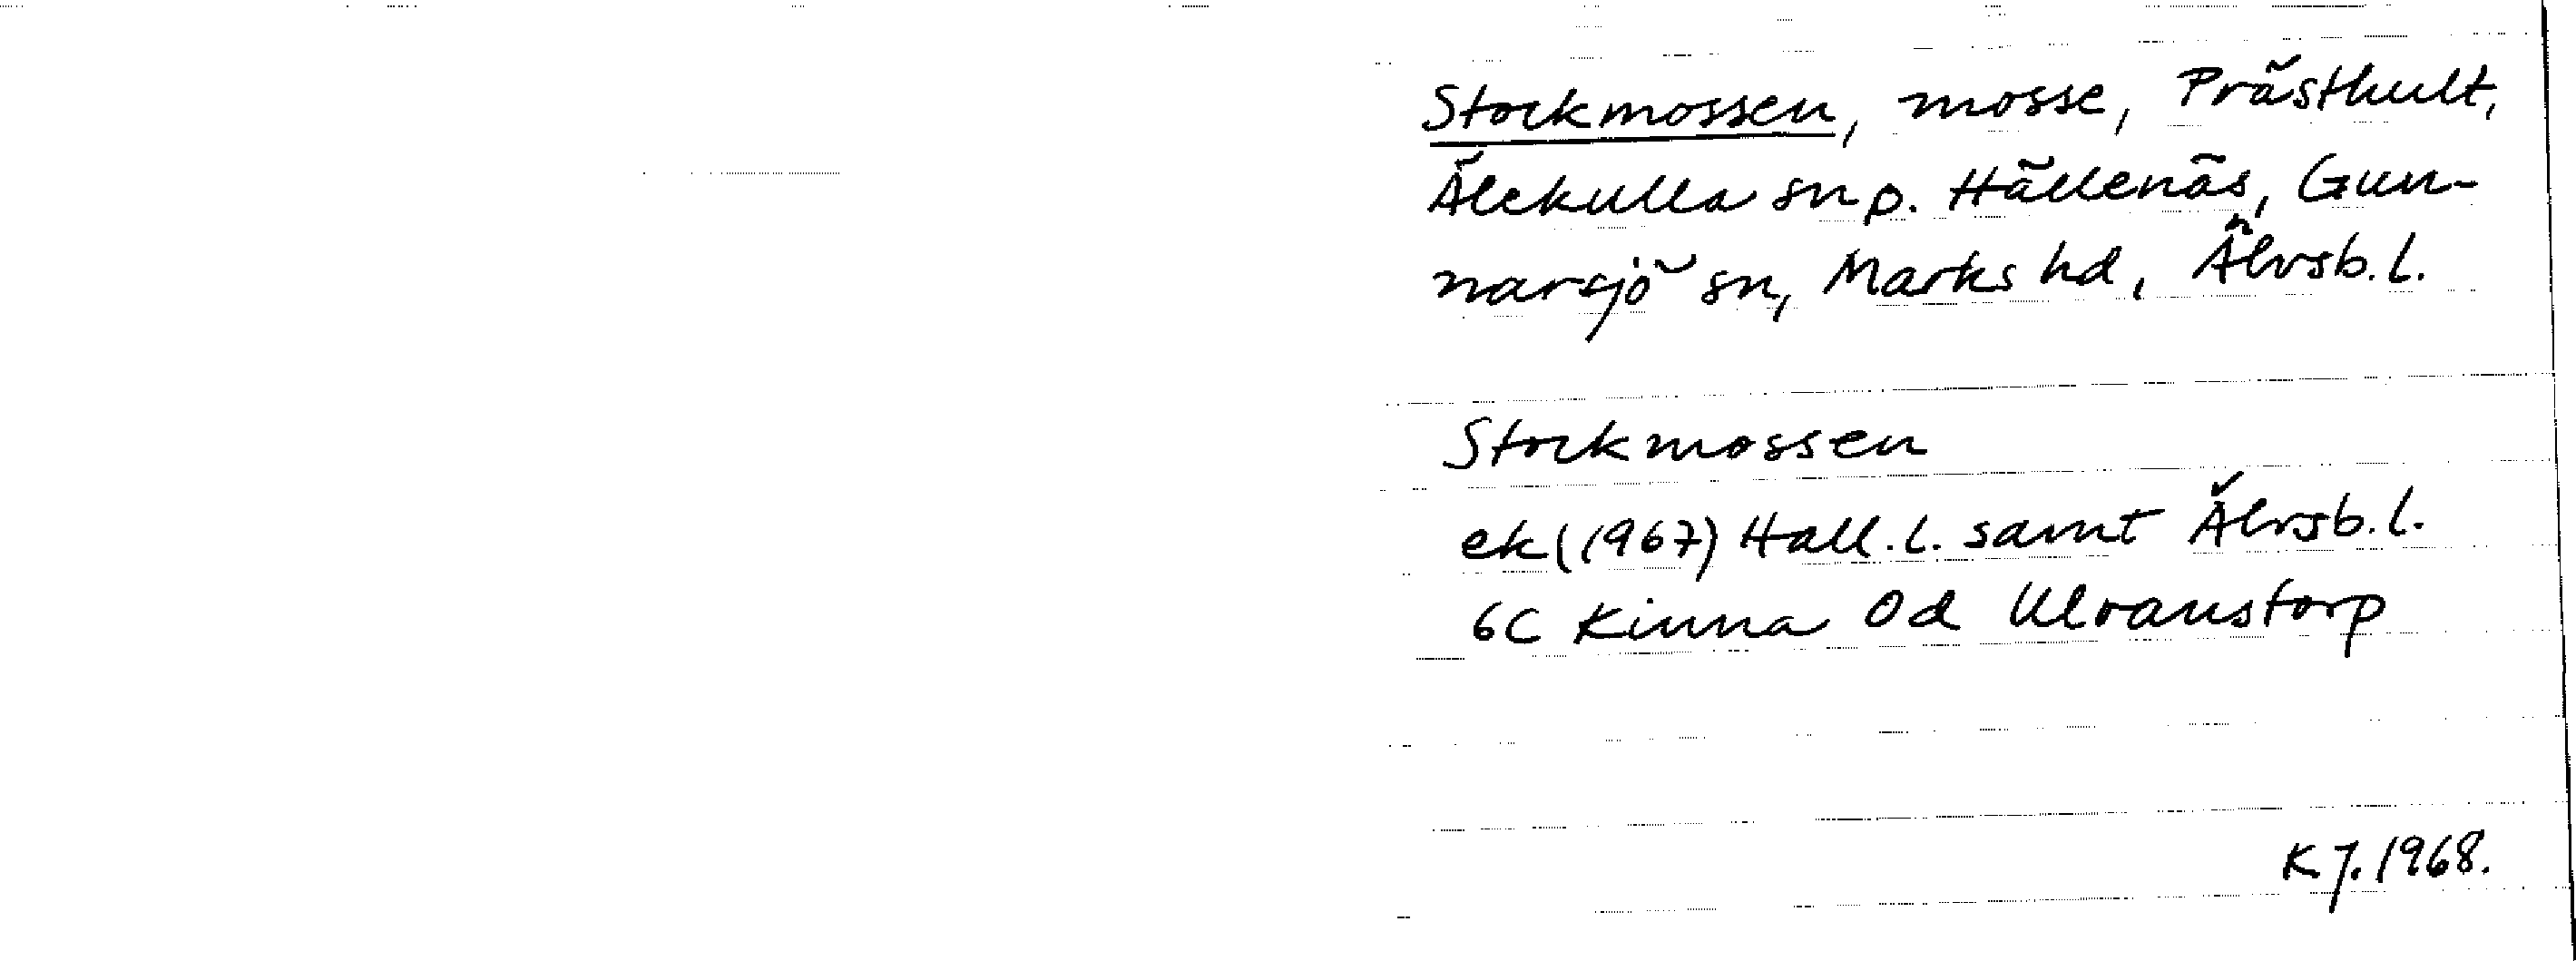 Stockmossen, mosse, Prästhult,
Älekulla sn p. Hällenäs, Gun-
narsjö sn, Marks hd, Älvsb. l.
Stockmossen
ek (1967) Hall. l. samt Älvsb. l.
6C Kinna 0d Ulvanstorp
K J. 1968.